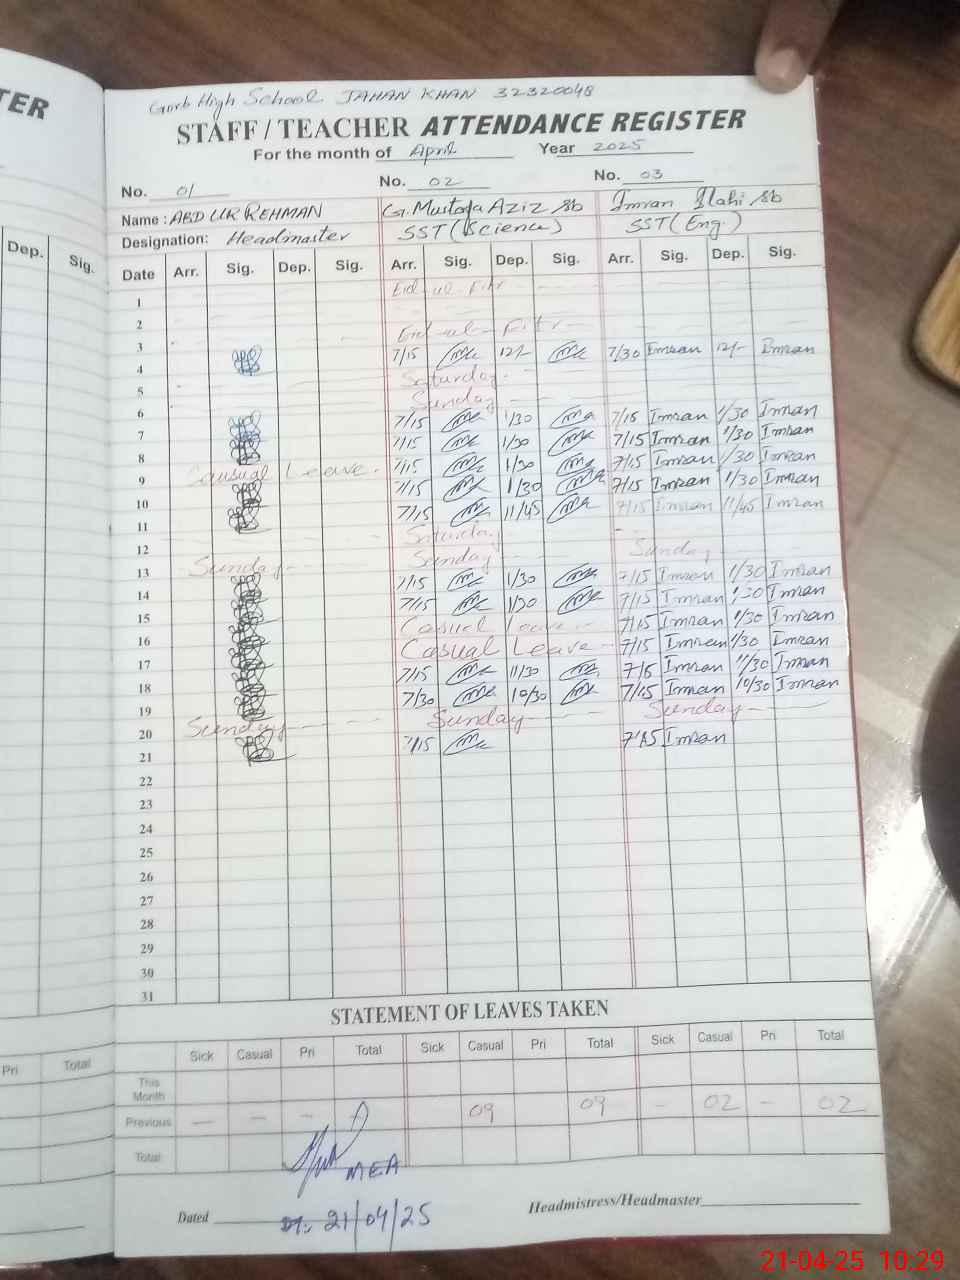 TER
Govt High School JAHAN KHAN 32320048
STAFF / TEACHER ATTENDANCE REGISTER
For the month of April Year 2025
No. 01 No. 02 No. 03
Name : ABD UR REHMAN G. Mustafa Aziz Sb Imran Ilahi Sb
Designation: Headmaster SST (Science) SST (Eng)
Dep. Sig.
Date Arr. Sig. Dep. Sig. Arr. Sig. Dep. Sig. Arr. Sig. Dep. Sig.
1 Eid-ul-Fitr
2
3 Eid-ul-Fitr
4 7/15 12/- 7/30 Imran 12/- Imran
5 Saturday
6 Sunday
7/15 1/30 7/15 Imran 1/30 Imran
7 7/15 1/30 7/15 Imran 1/30 Imran
8 7/15 1/30 7/15 Imran 1/30 Imran
9 Causual Leave. 7/15 1/30 7/15 Imran 1/30 Imran
10 7/15 11/45 7/15 Imran 11/45 Imran
11 Saturday
12 Sunday Sunday
13 Sunday 7/15 1/30 7/15 Imran 1/30 Imran
14 7/15 1/30 7/15 Imran 1/30 Imran
15 Casual Leave 7/15 Imran 1/30 Imran
16 Casual Leave 7/15 Imran 1/30 Imran
17 7/15 11/30 Imran 11/30 Imran
18 7/30 10/30 7/15 Imran 10/30 Imran
19 Sunday Sunday
20 Sunday
21 7/15 Imran
22
23
24
25
26
27
28
29
30
31
STATEMENT OF LEAVES TAKEN
Pri Total
Sick Casual Pri Total Sick Casual Pri Total Sick Casual Pri Total
This Month
Previous — — — 09 09 — 02 — 02
Total
MEA
Dated 21/04/25 Headmistress/Headmaster
21-04-25 10:29